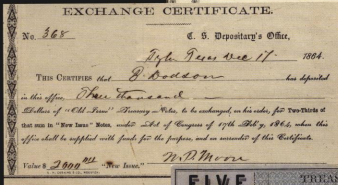 EXCHANGE CERTIFICATE.
No. 368 C. S. Depositary's Office,
Tyler Texas Dec 17 1864.
THIS CERTIFIES that R Dodson has deposited
in this office Three thousand
Dollars of "Old Issue" Treasury Notes, to be exchanged, on his order, for Two-Thirds of
that sum in "New Issue" Notes, under Act of Congress of 17th Feb'y, 1864, when this
office shall be supplied with funds for the purpose, and on surrender of this Certificate.
Value $ 2000 "New Issue."
FIVE TREAS